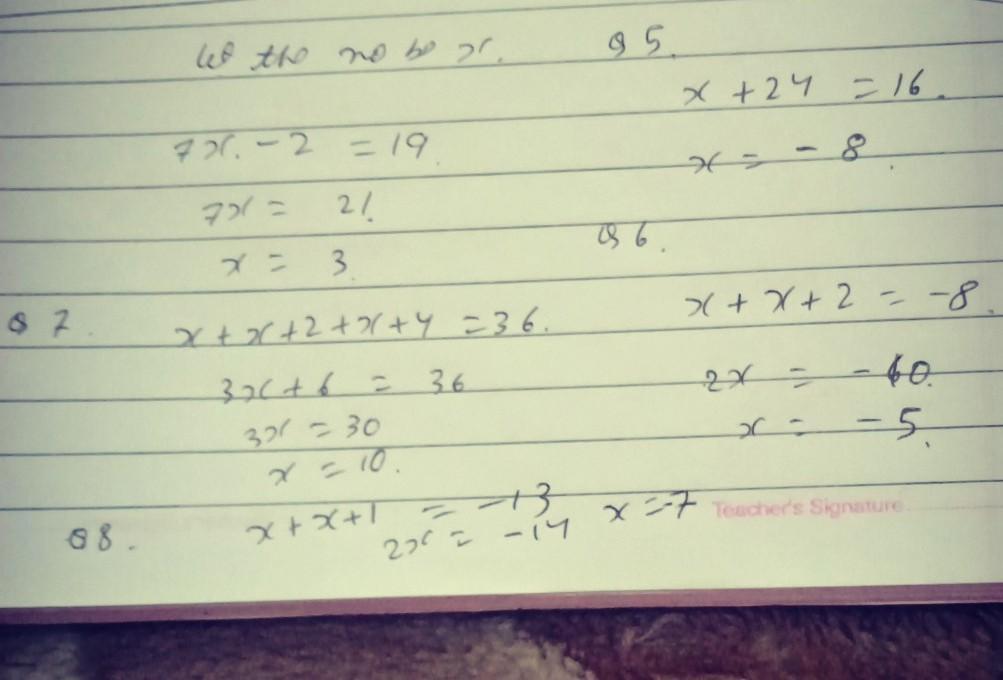 let the no be x.
7x - 2 = 19
7x = 21
x = 3
Q 5.
x + 24 = 16.
x = - 8.
Q 6.
x + x + 2 = -8.
2x = - 10.
x = - 5.
Q 7.
x + x + 2 + x + 4 = 36.
3x + 6 = 36
3x = 30
x = 10.
Q 8.
x + x + 1 = -13
2x = -14
x = -7
Teacher's Signature